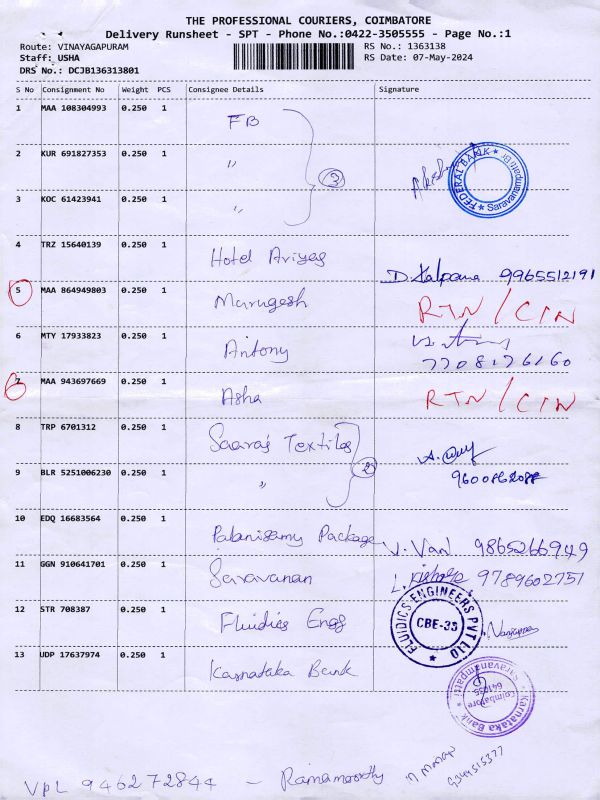 THE PROFESSIONAL COURIERS, COIMBATORE
Delivery Runsheet - SPT - Phone No.:0422-3505555 - Page No.:1
Route: VINAYAGAPURAM RS No.: 1363138
Staff: USHA RS Date: 07-May-2024
DRS No.: DCJB136313801
S No Consignment No Weight PCS Consignee Details Signature
1 MAA 108304993 0.250 1 FB
2 KUR 691827353 0.250 1 〃 FEDERAL BANK
3 KOC 61423941 0.250 1 〃 3
4 TRZ 15640139 0.250 1 Hotel Ariyas D. Kalpana 9965512191
5 MAA 864949803 0.250 1 Murugesh RTN / CIN
6 MTY 17933823 0.250 1 Antony 7708176160
7 MAA 943697669 0.250 1 Asha RTN / CIN
8 TRP 6701312 0.250 1 Saaras Textiles
9 BLR 5251006230 0.250 1 〃 2
10 EDQ 16683564 0.250 1 Palanisamy Package V. Van 9865266949
11 GGN 910641701 0.250 1 Saravanan 9789602751
12 STR 708387 0.250 1 Fluidics Engs FLUIDICS ENGINEERS PVT LTD CBE-33
13 UDP 17637974 0.250 1 Karnataka Bank Karnataka Bank Coimbatore
VPL 946272844 - Ramamoorthy